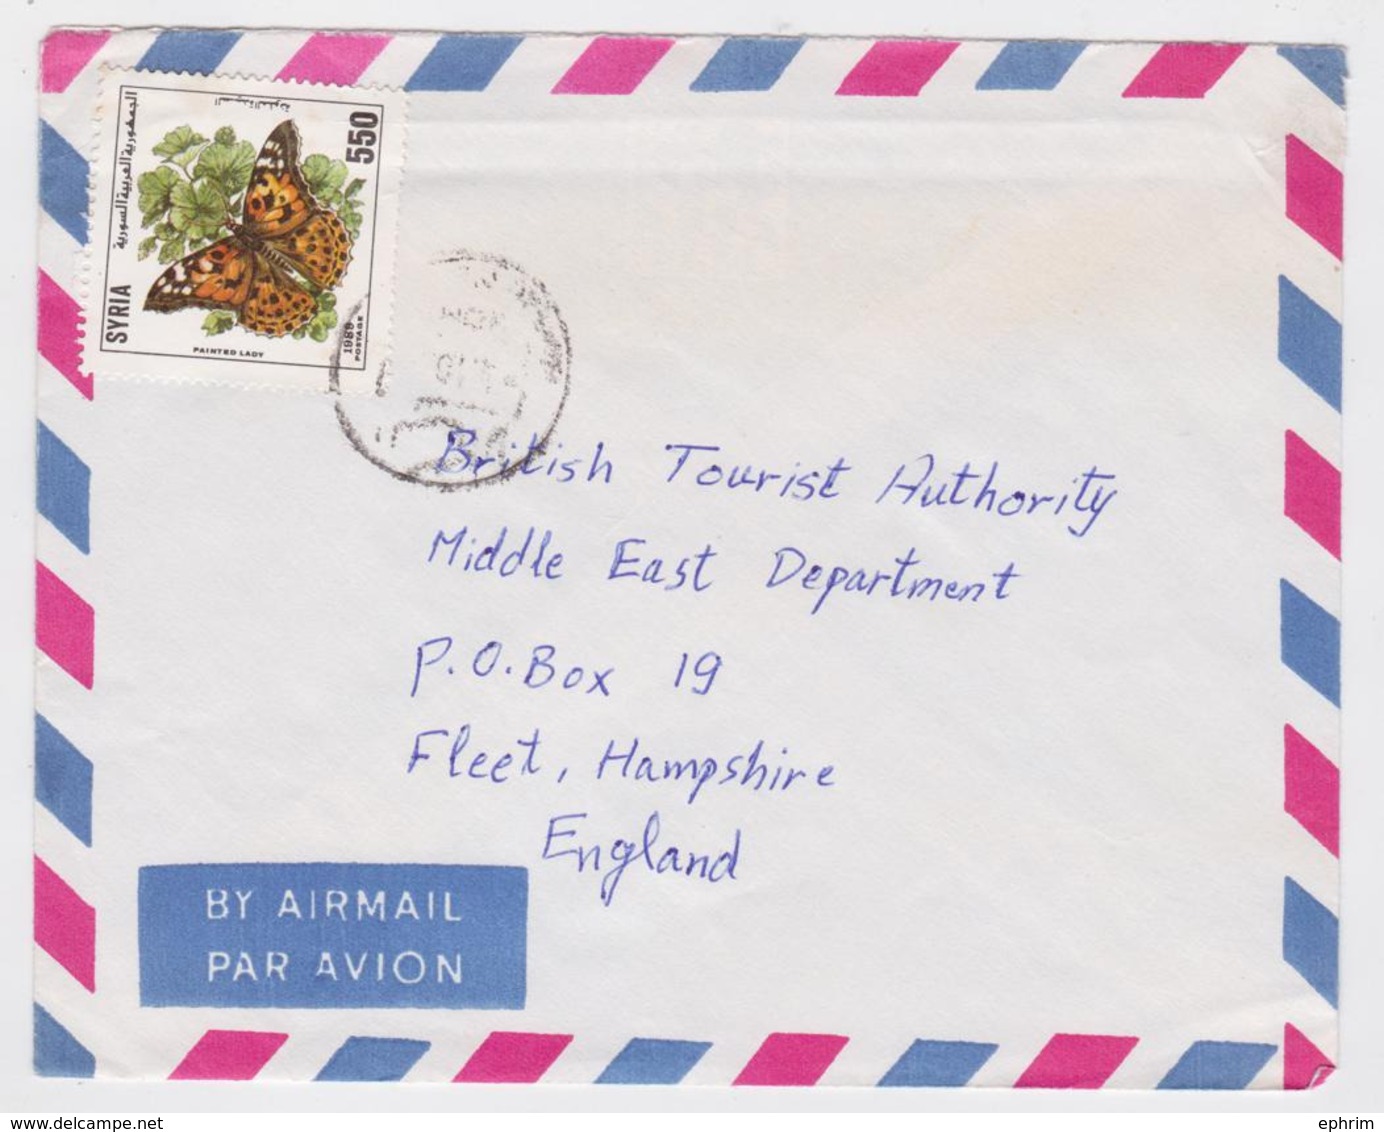 الجمهورية العربية السورية
550
SYRIA
PAINTED LADY
1989
POSTAGE
British Tourist Authority
Middle East Department
P.O.Box 19
Fleet, Hampshire
England
BY AIRMAIL
PAR AVION
www.delcampe.net
ephrim